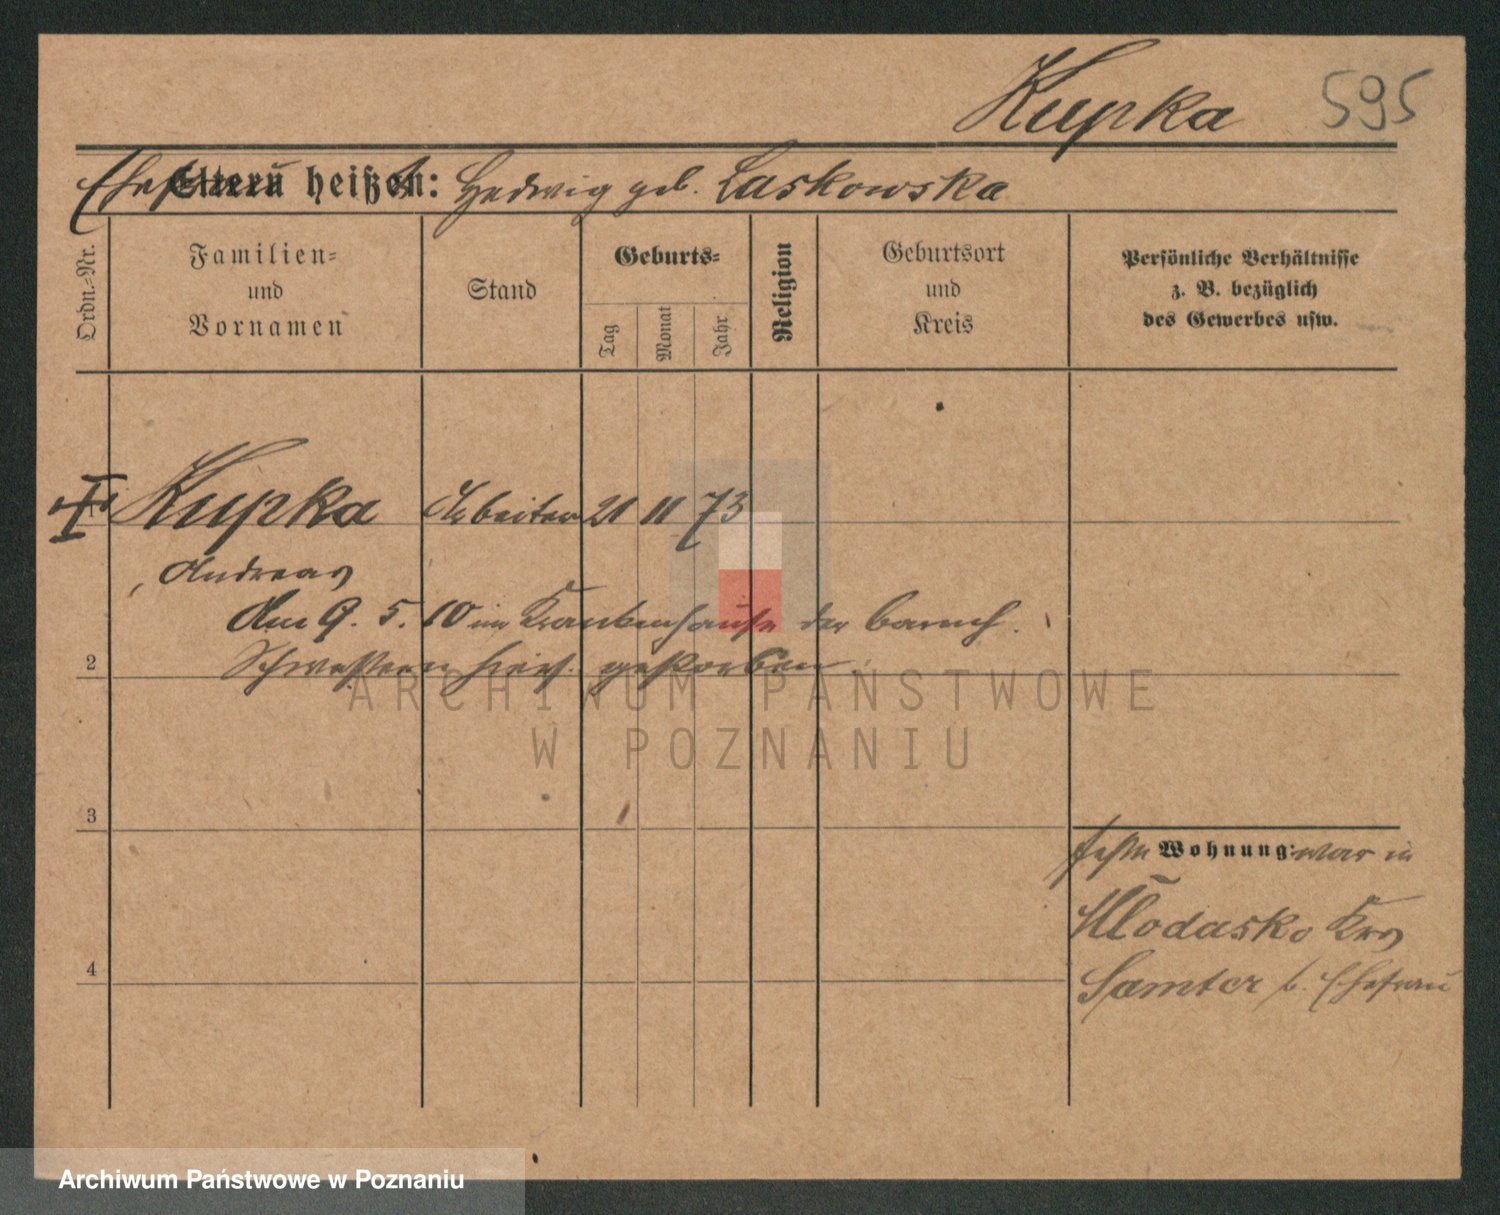 Kupka 595
Ehefrau Eltern heißen: Hedwig geb. Laskowska
Ordn.-Nr.
Familien-
und
Vornamen
Stand
Geburts-
Tag
Monat
Jahr
Religion
Geburtsort
und
Kreis
Persönliche Verhältnisse
z. B. bezüglich
des Gewerbes usw.
1 Kupka Arbeiter 21 11 73
Andreas
Am 9. 5. 10 im Krankenhause der barmh.
2 Schwestern hier gestorben.
ARCHIWUM PAŃSTWOWE
W POZNANIU
3
feste Wohnung: war in
Krs
4
Samter b. Ehefrau
Archiwum Państwowe w Poznaniu